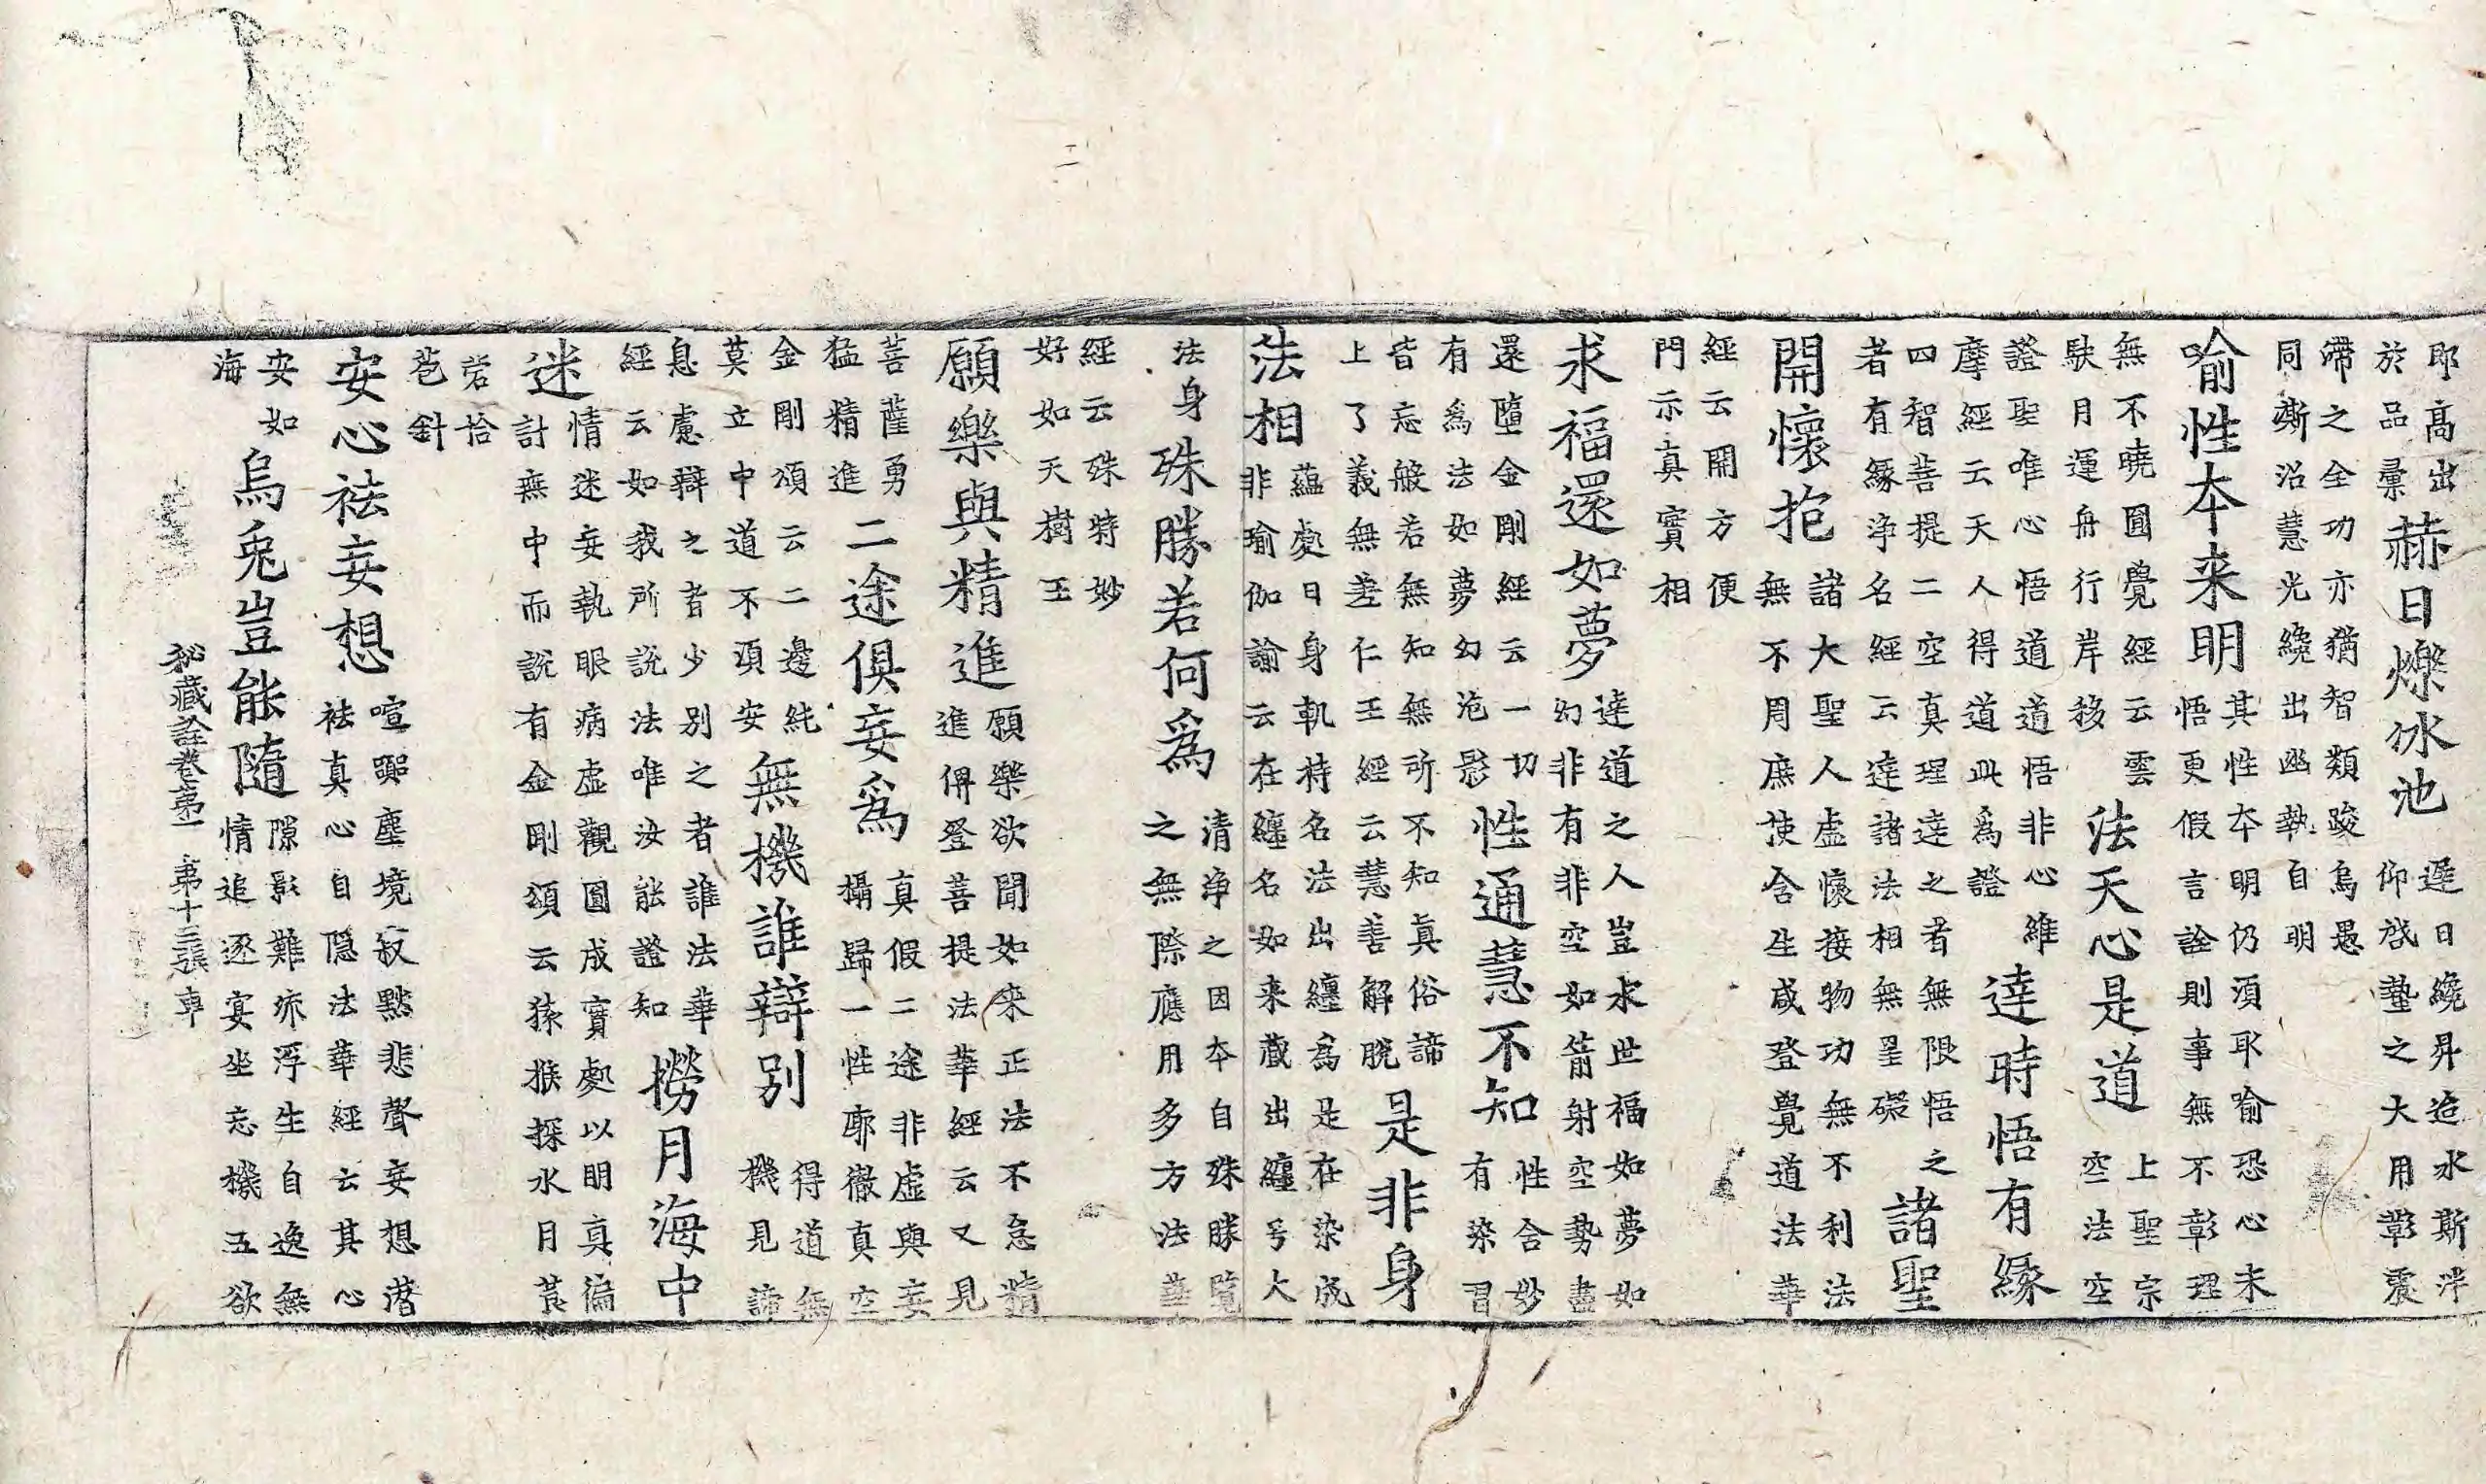 高出
於品彙
赫日爍冰池
遲日纔昇迨水斯泮
仰啓蟄之大用彰震
之全功亦猶智類踆烏愚
同嘶沼慧光纔出幽執自明
喻性本来明
其性本明仍湏耶喻恐心未
悟更假言詮則事無不彰理
無不曉圓覺經云雲
駃月運舟行岸移
法天心是道
上聖宗
空法空
證聖唯心悟道道悟非心維
摩經云天人得道此為證
達時悟有緣
四智菩提二空真理達之者無限悟之
者有緣淨名經云達諸法相無罣礙
諸聖
開懷抱
諸大聖人虛懷接物功無不利法
無不周庶使含生咸登覺道法華
經云開方便
門示真實相
求福還如夢
達道之人豈求世福如夢如
幻非有非空如箭射空勢盡
還墮金剛經云一切
有爲法如夢幻泡影
性通慧不知
性合妙
有染習
皆忘般若無知無所不知真俗諦
上了義無差仁王經云慧善解脫
是非身
法相
蘊處曰身軌持名法出纏爲是在染成
非瑜伽論云在纏名如来藏出纏号大
法身
殊勝若何爲
清淨之因本自殊勝覽
之無際應用多方法華
經云殊特妙
好如天樹王
願樂與精進
願樂欲聞如来正法不怠精
進俾登菩提法華經云又見
菩薩勇
猛精進
二途俱妄爲
真假二途非虛與妄
攝歸一性耶徹真空
金剛頌云二邊純
莫立中道不湏安
無機誰辯別
得道無
機見諦
息慮辯之者少別之者誰法華
經云如我所說法唯汝能證知
撈月海中
迷
情迷妄執眼病虛觀圓成實處以明真徧
計無中而說有金剛頌云猿猴探水月莨
菪拾
苞針
安心祛妄想
喧嚻塵境寂默悲聲妄想潜
祛真心自隱法華經云其心
安如
海
烏兎豈能隨
隙影難㳂浮生自逸無
情追逐宴坐忘機五欲
祕藏詮卷第一 第十三張 專